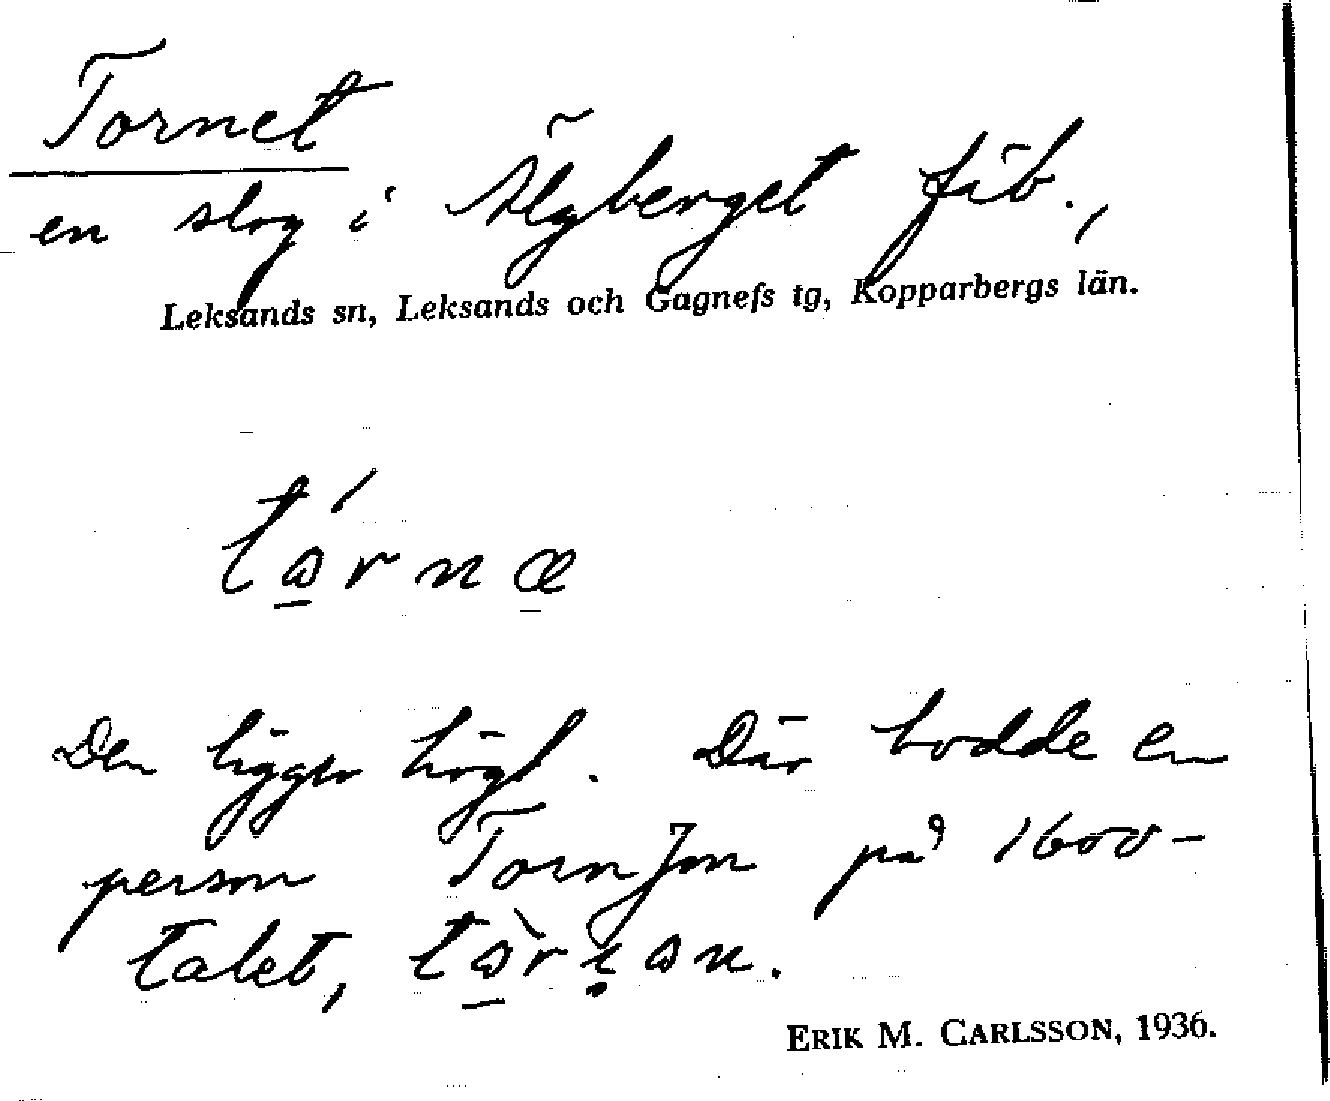 Tornet
en slog i Älgberget fäb.,
Leksands sn, Leksands och Gagnefs tg, Kopparbergs län.
Den ligger högt. Där bodde en
person Torn Jon på 1600-
talet,
ERIK M. CARLSSON, 1936.